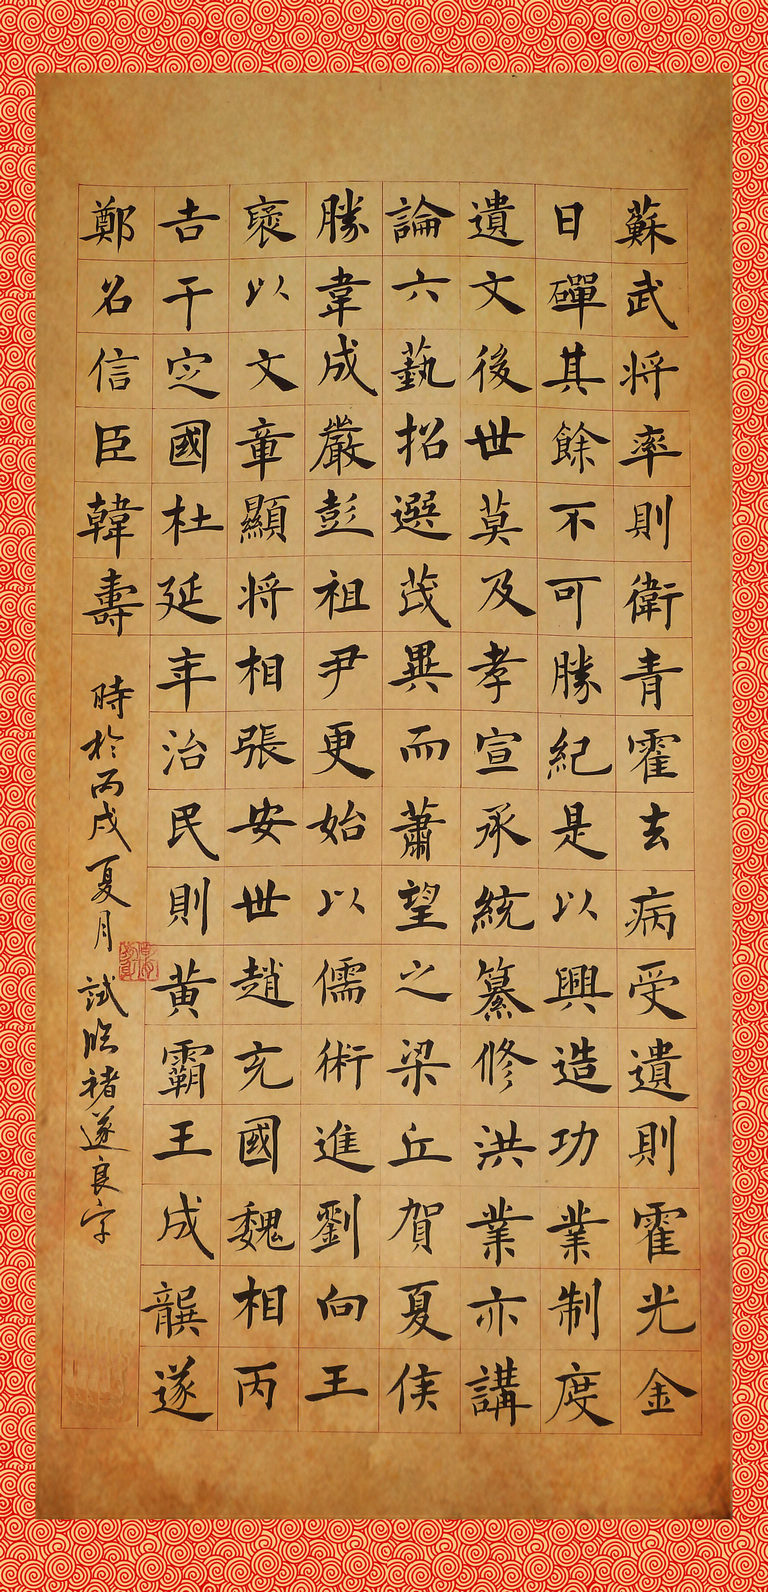 蘇武將率則衛青霍去病受遺則霍光金
日磾其餘不可勝紀是以興造功業制度
遺文後世莫及孝宣承統纂修洪業亦講
論六藝招選茂異而蕭望之梁丘賀夏侯
勝韋成嚴彭祖尹更始以儒術進劉向王
褒以文章顯將相張安世趙充國魏相丙
吉于定國杜延年治民則黃霸王成龔遂
鄭名信臣韓壽
時於丙戌夏月試臨褚遂良字